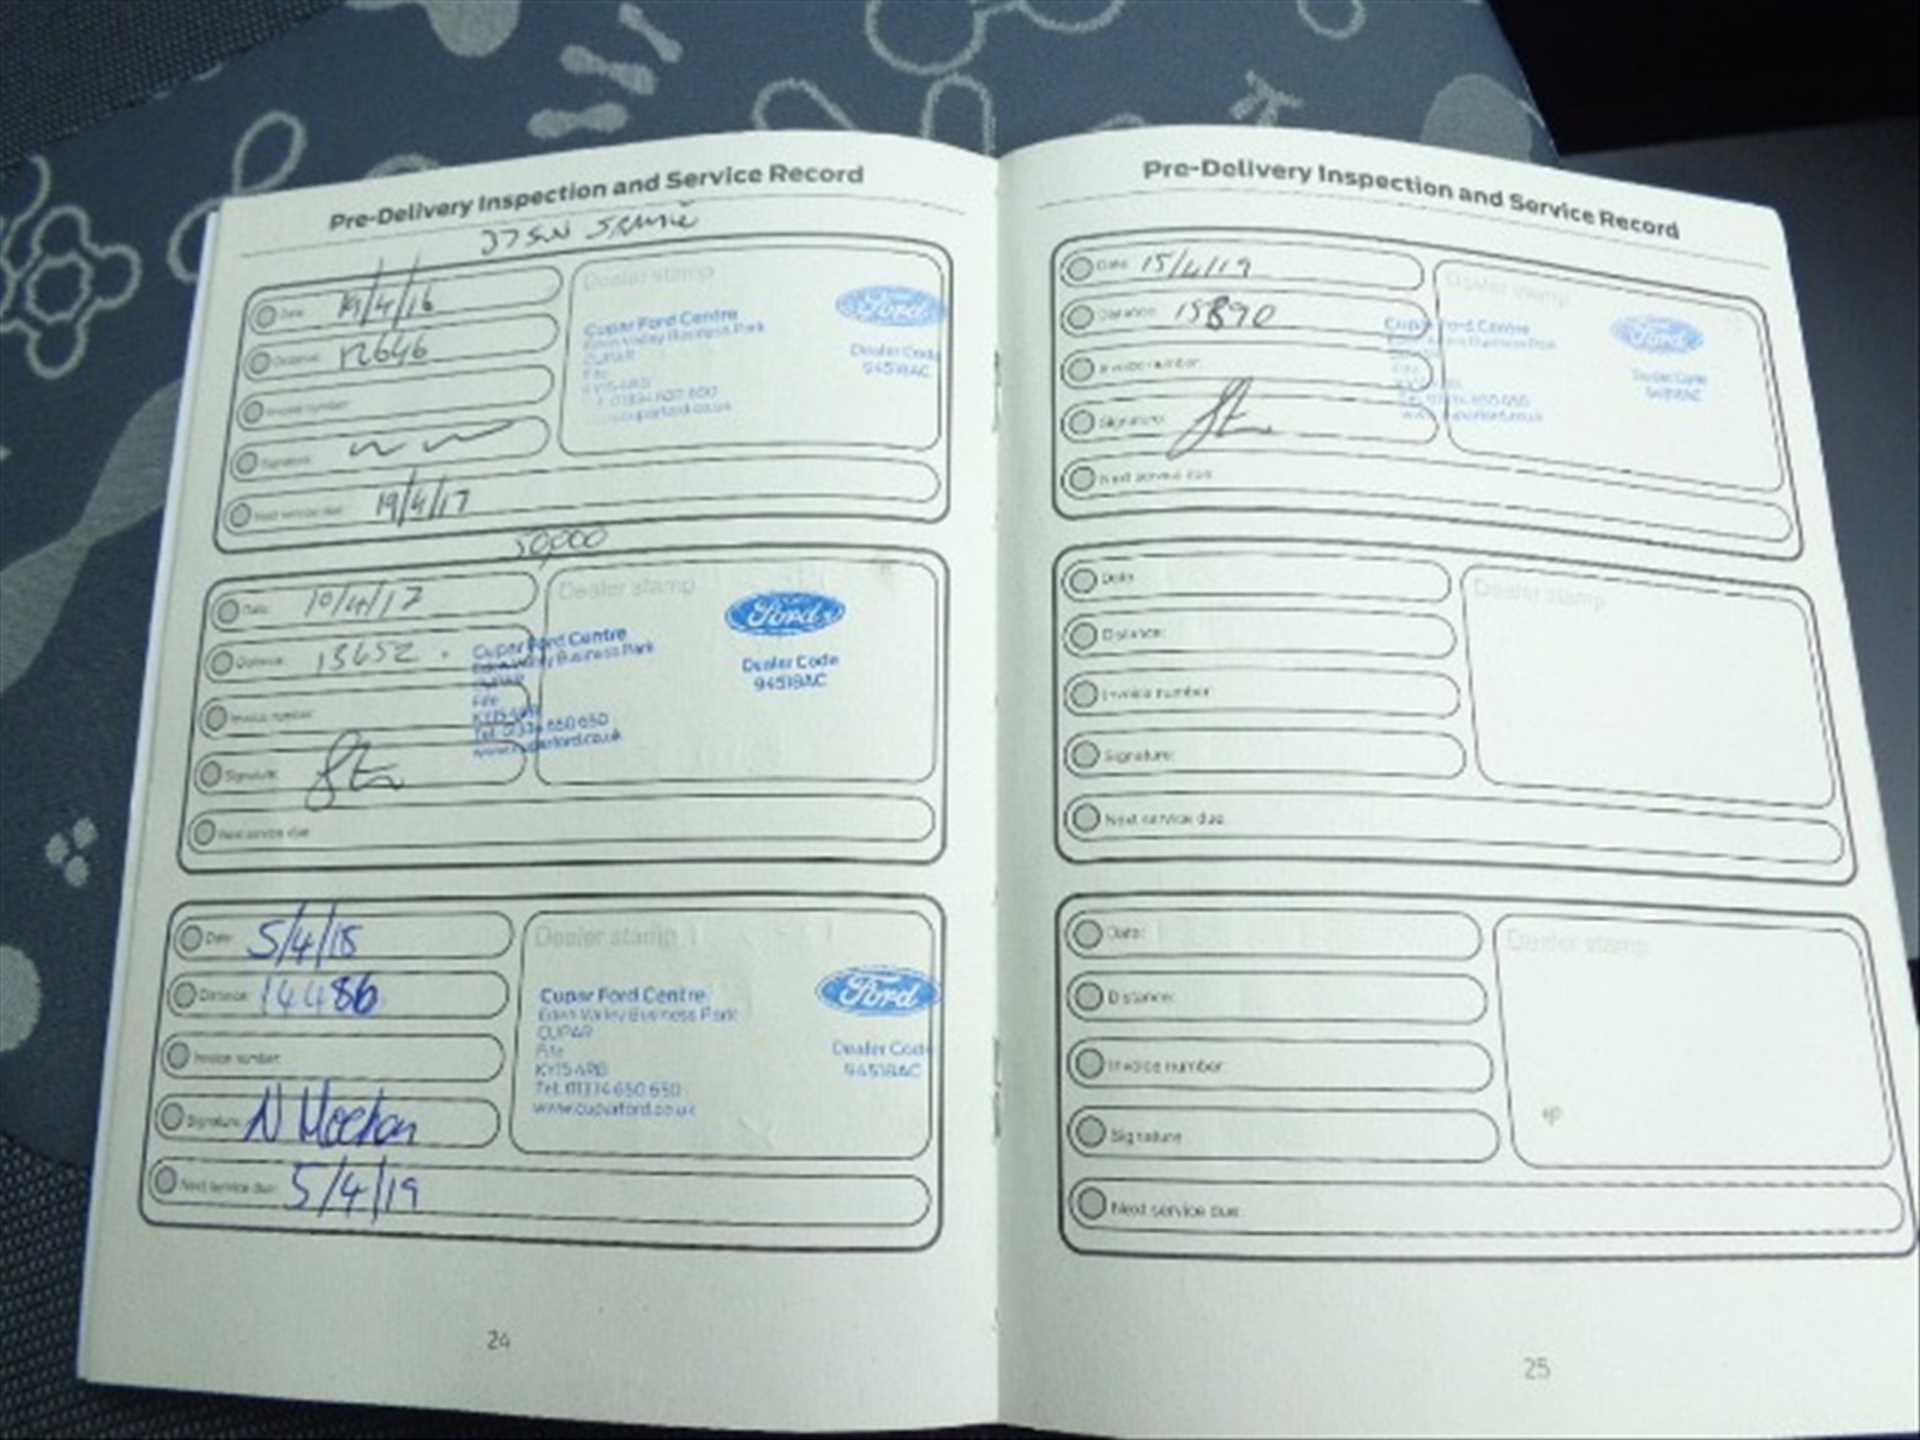 Pre-Delivery Inspection and Service Record
Date: 19/4/16
Distance: 12646
Invoice number:
Signature:
Next service due: 19/4/17
Dealer stamp
Cupar Ford Centre
Eden Valley Business Park
CUPAR
Fife
KY15 4RB
T: 01334 650 650
cuparford.co.uk
Ford
Dealer Code
94518AC
50,000
Date: 10/4/17
Distance: 13652
Invoice number:
Signature:
Next service due:
Dealer stamp
Cupar Ford Centre
Eden Valley Business Park
CUPAR
Fife
KY15 4RB
Tel: 01334 650 650
www.cuparford.co.uk
Ford
Dealer Code
94518AC
Date: 5/4/18
Distance: 14486
Invoice number:
Signature: N Meehan
Next service due: 5/4/19
Dealer stamp
Cupar Ford Centre
Eden Valley Business Park
CUPAR
Fife
KY15 4RB
Tel: 01334 650 650
www.cuparford.co.uk
Ford
Dealer Code
94518AC
24
Pre-Delivery Inspection and Service Record
Date: 15/4/19
Distance: 15890
Invoice number:
Signature:
Next service due:
Dealer stamp
Cupar Ford Centre
Eden Valley Business Park
CUPAR
Fife
KY15 4RB
Tel: 01334 650 650
www.cuparford.co.uk
Ford
Dealer Code
94518AC
Date:
Distance:
Invoice number:
Signature:
Next service due:
Dealer stamp
Date:
Distance:
Invoice number:
Signature:
Next service due:
Dealer stamp
25